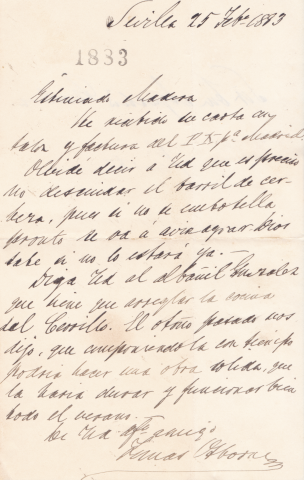 Sevilla 25 Febº 1883
1883
Estimado Madera
He recibido su carta con
talon y factura del PX pª Madrid
Olvidé decir á Ud que es preciso
no descuidar el barril de cer-
beza, pues si no se embotella
pronto se va a avinagrar. Dios
sabe si no lo estará ya.
Diga Ud al albañil Gonzalez
que tiene que arreglar la
del Cerrillo. El otoño pasado nos
dijo, que empezando la con tiempo
podria hacer una obra solida, que
la haria durar y funcionar bien
todo el verano.
De Ud afmo amigo
Tomas Osborne